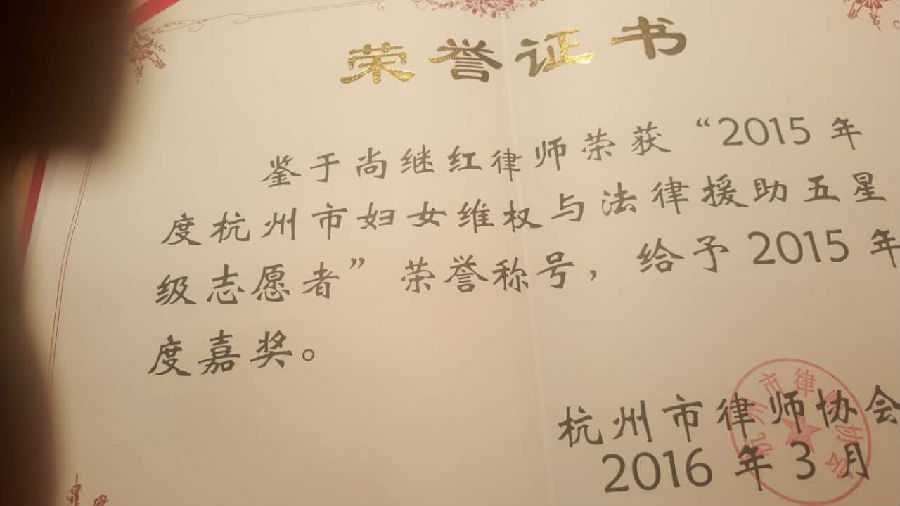 荣誉证书
鉴于尚继红律师荣获“2015年
度杭州市妇女维权与法律援助五星
级志愿者”荣誉称号，给予2015年
度嘉奖。
杭州市律师协会
2016年3月
杭州市律师协会